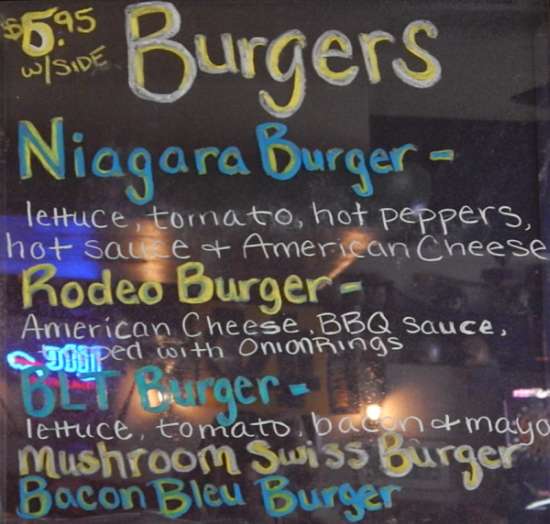 $5.95 Burgers
w/SIDE
Niagara Burger -
lettuce, tomato, hot peppers,
hot sauce & American Cheese
Rodeo Burger -
American Cheese, BBQ sauce,
with Onion Rings
BLT Burger -
lettuce, tomato, bacon & mayo
Mushroom Swiss Burger
Bacon Bleu Burger